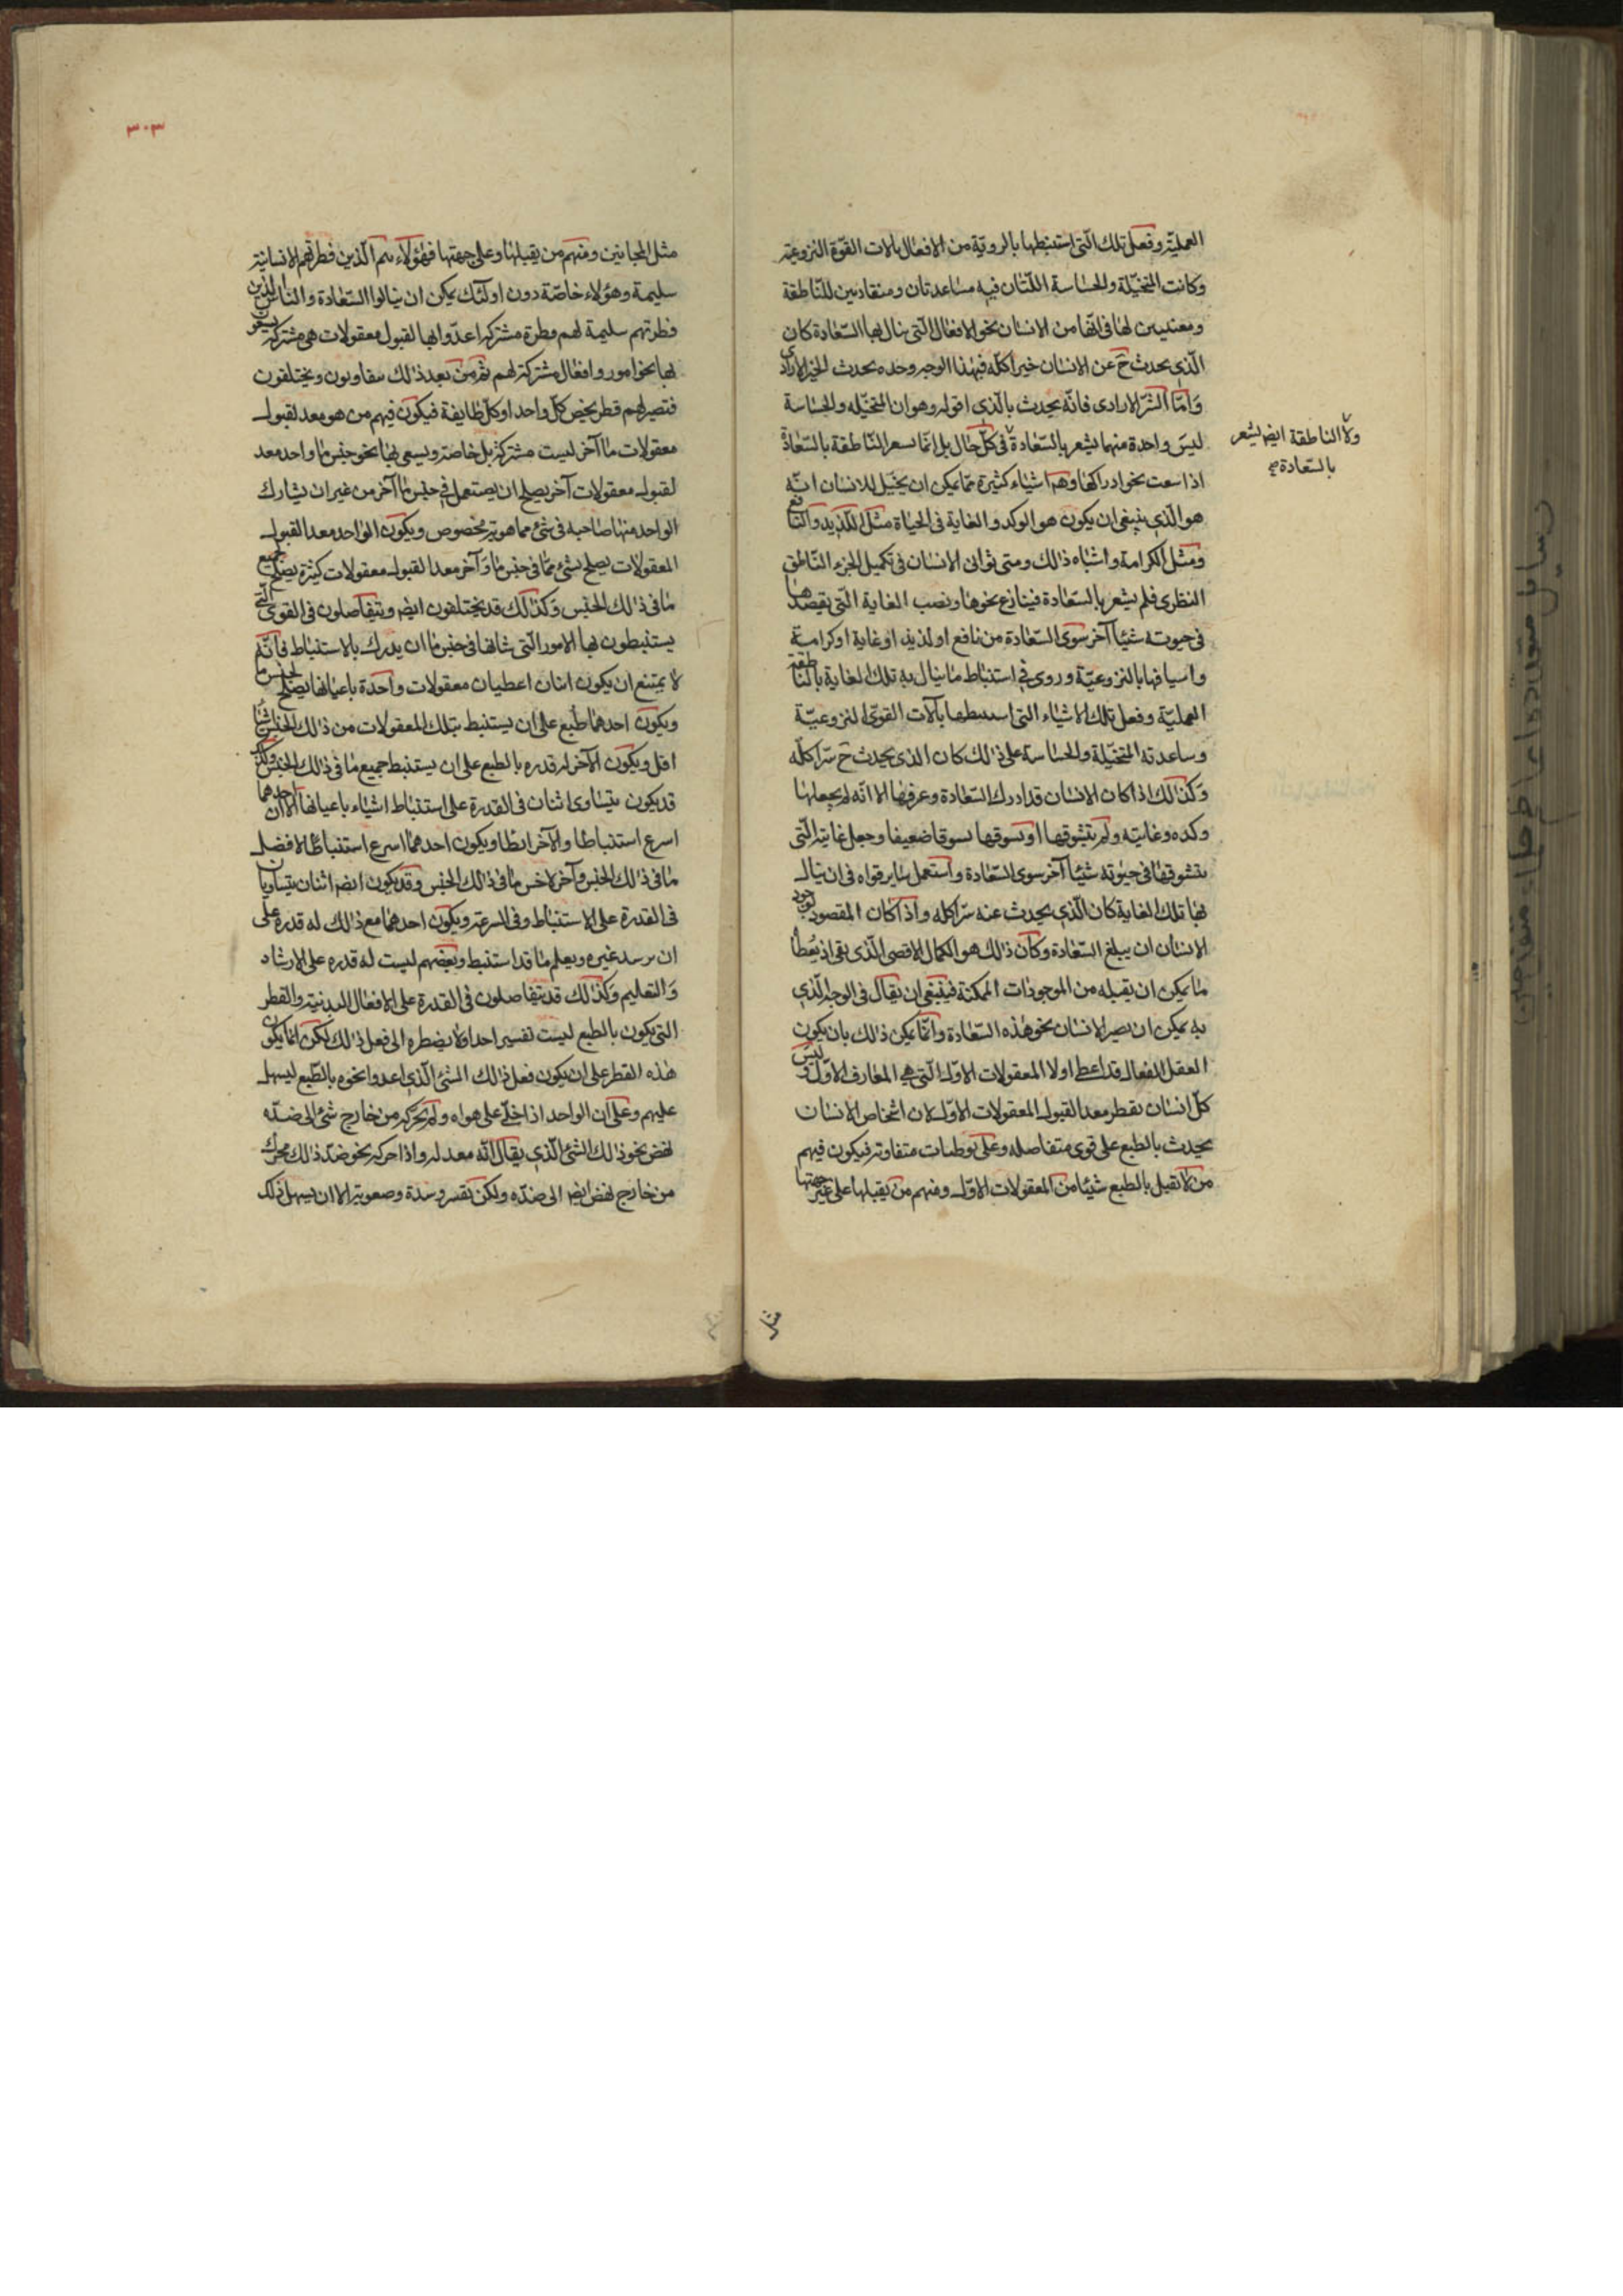 العمليّة وفعل تلك الّتى استنبطها بالرويّة من الافعال بالات القوّة النزوعية
وكانت المتخيّلة والحساسة اللّتان فيه مساعدتان ومنقادتين للنّاطقة
ومعنيتين لها فى انهاض الانسان نحو الافعال الّتى ينال بها السّعادة كان
الّذى يحدث ح عن الانسان خيرا كلّه فبهذا الوجه وحده يحدث الخير الارادى
وَامّا الشّر الارادى فانّه يحدث بالّذى اقوله وهو ان المتخيّله والحساسة
ليسَ واحدة منهما يشعر بالسّعادة فى كلّ حال بل انّما يسعر النّاطقة بالسّعادة
ولا الناطقة ايضا يشعر
بالسّعادة صح
اذا سعت نحو ادراكها وههنا اشياء كثيرة ممّا يمكن ان يخيّل للانسان انّه
هو الّذى ينبغى ان يكون هو الوكد والغاية فى الحياة مثل اللّذيد والنّافع
ومثل الكرامة واشباه ذالك ومتى توانى الانسان فى تكميل الجزء النّاطق
النظرى فلم يشعر بالسّعادة فينازع نحوها ونصب الغاية الّتى يقصدها
فى حيوته شيئا آخر سوى السّعادة من نافع او لذيذ او غاية او كرامة
واسيافها بالنزوعيّة وروى فى استنباط ما ينال به تلك الغاية بالنّاطقة
العمليّة وفعل تلك الاشياء التى استنبطها بآلات القوّى النزوعيّة
وساعدته المتخيّلة والحساسة على ذالك كان الذى يحدث ح شرّا كلّه
وَكذالك اذا كان الانسان قد ادرك السّعادة وعرفها الا انّه لم يجعلها
وكده وغايته ولم يتشوقها او تسوقها تسوقا ضعيفا وجعل غايته الّتى
يتشوقها فى حيوته شيئا آخر سوى السّعادة واستعمل ساير قواه فى ان ينال
بها تلك الغاية كان الّذى يحدث عنه شرّا كله واذا كان المقصود لوجود
الانسان ان يبلغ السّعادة وكان ذالك هو الكمال الاقصى الّذى بقى اذ يُعطا
ما يمكن ان يقبله من الموجودات الممكنة فينبغى ان يقال فى الوجه الّذى
به يمكن ان يصير الانسان نحو هذه السّعادة وانّما يمكن ذالك بان يكون
العقل الفعال قد اعطا اولا المعقولات الاول الّتى هى المعارف الاوّل وليس
كلّ انسان يفطر معدا لقبول المعقولات الاوّل لان اشخاص الانسان
يحدث بالطبع على قوى متفاصله وعلى توطئات متفاوته فيكون فيهم
من لا تقبل بالطبع شيئا من المعقولات الاوّل ومنهم من يقبلها على غير جهتها
مثل
٣٠٣
مثل المجانين ومنهم من يقبلها وعلى جهتها فهؤلاء هم الّذين فطرتهم الانسانية
سليمة وهؤلاء خاصّة دون اولئك يمكن ان ينالوا السّعادة والناس الّذين
فطرتهم سليمة لهم فطرة مشتركه اعدّوا بها لقبول معقولات هى مشتركه يسعون
بها نحوا مور وافعال مشتركة لهم ثمّ من بعد ذلك يتفاوتون ويختلفون
فتصير لهم فطر يخص كلّ واحد او كلّ طايفة فيكون فيهم من هو معد لقبول
معقولات ما آخر ليست مشتركة بل خاصّة ويسعى بها نحو جنس ما وواحد معد
لقبول معقولات آخر يصلح ان يستعمل فى جنس ما آخر من غير ان يشارك
الواحد منها صاحبه فى شئ مما هو به مخصوص ويكون الواحد معدا لقبول
المعقولات يصلح بشئ ممّا فى جنس ما وَآخر معدا لقبول معقولات كثيرة يصلح جميع
ما فى ذالك الجنس وَكذالك قد يختلفون ايضا ويتفاصلون فى القوى الّتى
يستنبطون بها الامور الّتى شانها فى جنس ما ان يدرك بالاستنباط فانّه
لا يمتنع ان يكون اثنان اعطيان معقولات واحدة باعيانها يصلح لجنس ما
ويكون احدهما طبع على ان يستنبط بتلك المعقولات من ذالك الجنس اشياء
اقل ويكون الآخر له قدره بالطبع على ان يستنبط جميع ما فى ذالك الجنس وكذلك
قد يكون يتساوى اثنان فى القدرة على استنباط اشياء باعيانها الا ان احدهما
اسرع استنباطا والآخر ابطا ويكون احدهما اسرع استنباطا لافضل
ما فى ذالك الجنس وآخر لاخس ما فى ذالك الجنس وقد يكون ايضا اثنان يتساويان
فى القدرة على الاستنباط وفى السرعة ويكون احدهما مع ذالك له قدره على
ان يرسد غيره ويعلم ما قد استنبط وبعضهم ليست له قدره على الارشاد
وَالتعليم وَكذالك قد يتفاصلون فى القدرة على الافعال البدنية والفطر
التى يكون بالطبع ليست تقسر احدا ولا يضطره الى فعل ذالك لكن انّما يكون
هٰذه الفطر على ان يكون فعل ذالك الشئ الّذى اعدوا نحوه بالطّبع ليسهل
عليهم وعلى ان الواحد اذا خلّى على هواه ولم يحرّكه من خارج شئ الى ضدّه
نهض نحو ذالك الشئ الّذى يقال انّه معد له واذا حركه نحو ضدّ ذالك محرّك
من خارج نهض ايضا الى ضدّه ولكن بقسر وسدة وصعوبة الا ان يسهل ذلك